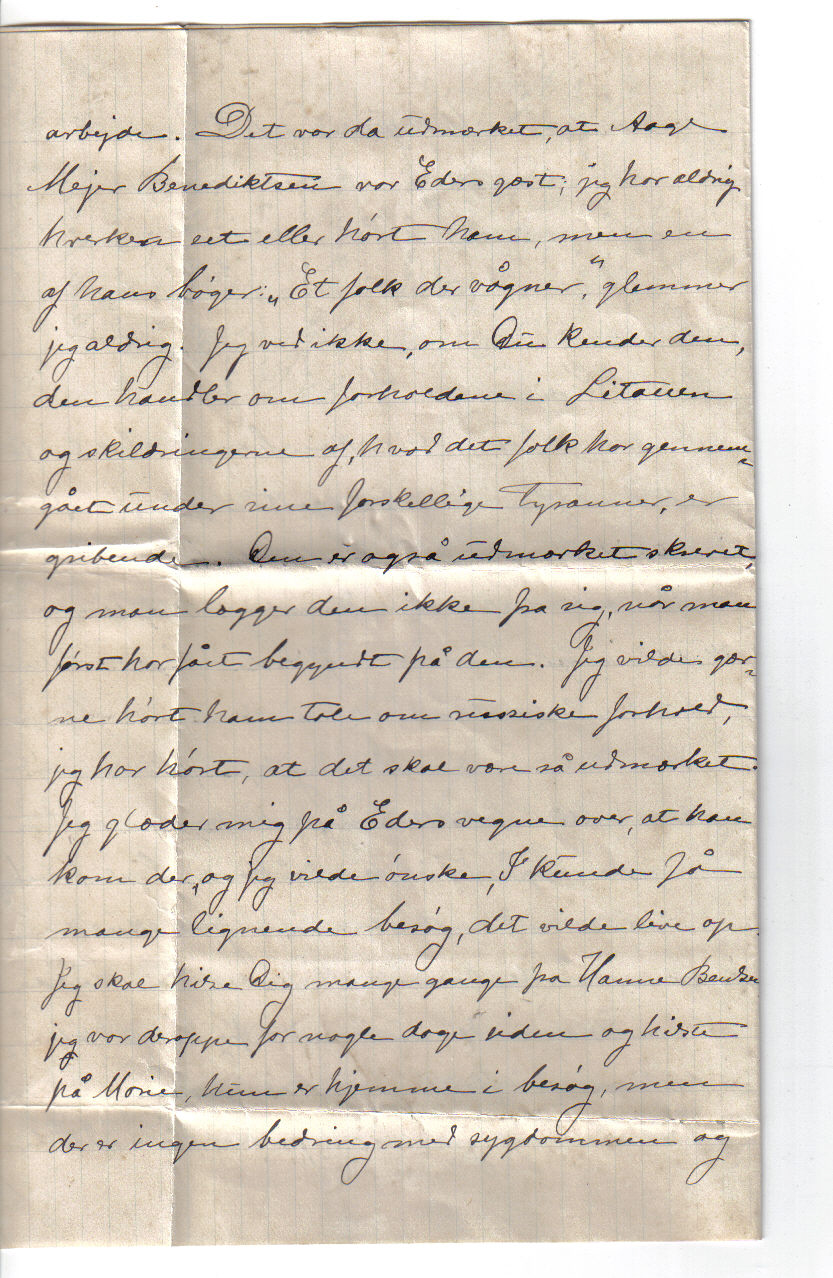 arbejde. Det var da udmærket, at Aage
Mejer Benediktsen var Eders gæst; jeg har aldrig
hverken set eller hørt ham, men en
af hans bøger: „Et folk der vågner," glemmer
jeg aldrig. Jeg ved ikke, om Du kender den,
den handler om forholdene i Litauen
og skildringerne af, hvad det folk har gennem-
gået under sine forskellige tyranner, er
gribende. Den er også udmærket skrevet,
og man lægger den ikke fra sig, når man
først har fået begyndt på den. Jeg vilde gær-
ne hørt ham tale om russiske forhold,
jeg har hørt, at det skal være så udmærket.
Jeg glæder mig på Eders vegne over, at han
kom der, og jeg vilde ønske, I kunde få
mange lignende besøg, det vilde live op.
Jeg skal hilse Dig mange gange fra Hanne Bendsen
jeg var deroppe for nogle dage siden og hilste
på Marie, hun er hjemme i besøg, men
der er ingen bedring med sygdommen og